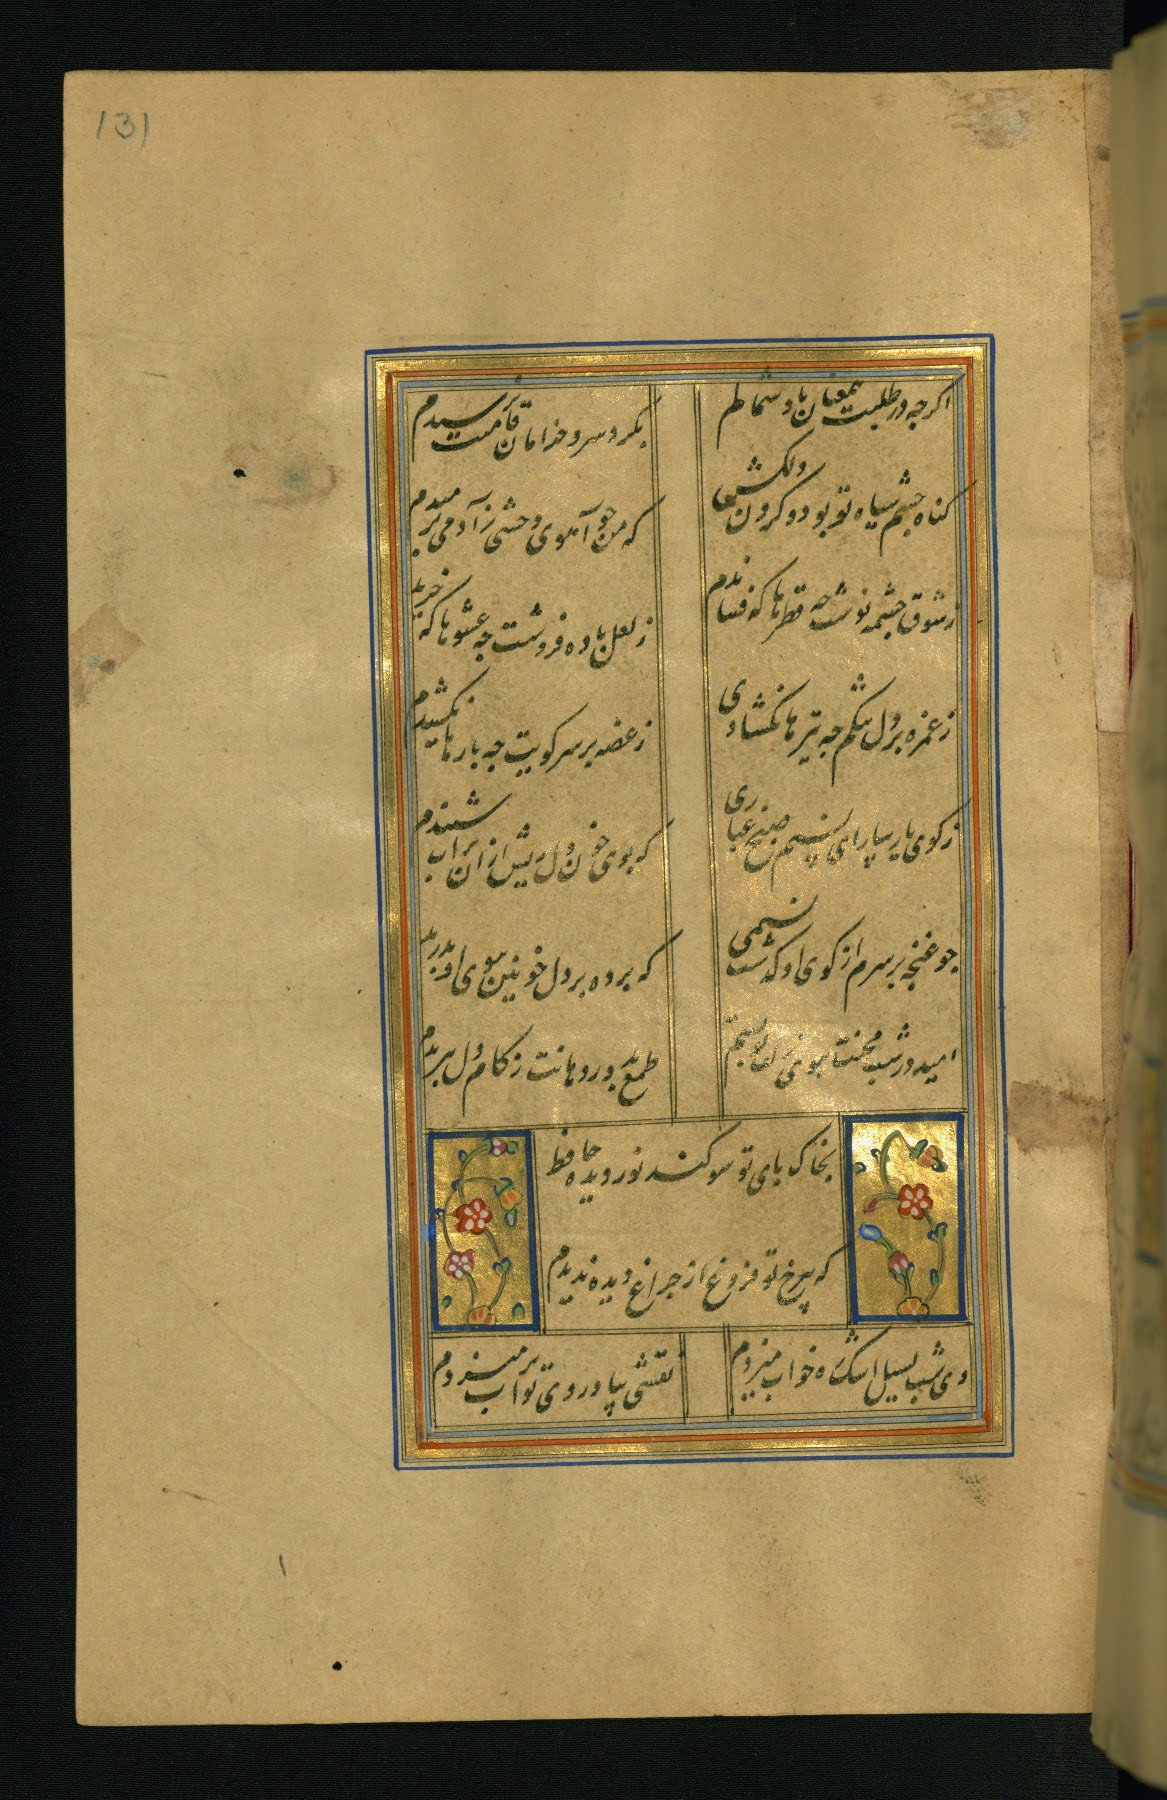 131
اکرچه در طلبت همعنان باد شمالم
بکرد سرو خرامان قامتت نرسیدم
کناه چشم سیاه تو بود و کردن دلکش
که من جو آهوی وحشی ز آدمی برمیدم
ز شوق چشمه نوشت چه قطرها که فشاندم
ز لعل باده فروشت چه عشوها که خریدم
ز غمزه بر دل تنکم چه تیرها که کشادی
ز غصه بر سر کویت چه بارها که کشیدم
ز کوی یار بیار ای نسیم صبح غباری
که بوی خون دل ریش از آن تراب شنیدم
جو غنچه بر سرم از کوی او کذشت نسیمی
که پرده بر دل خونین ببوی او بدریدم
امید در شب محنت بموی آن تو بستم
طمع بدور دهانت ز کام دل ببریدم
بخاک بای تو سوکند نور دیده حافظ
که بی رخ تو فروغ از جراغ دیده ندیدم
دی شب بسیل اشک ره خواب میزدم
نقشی بیاد روی تو بر آب میزدم